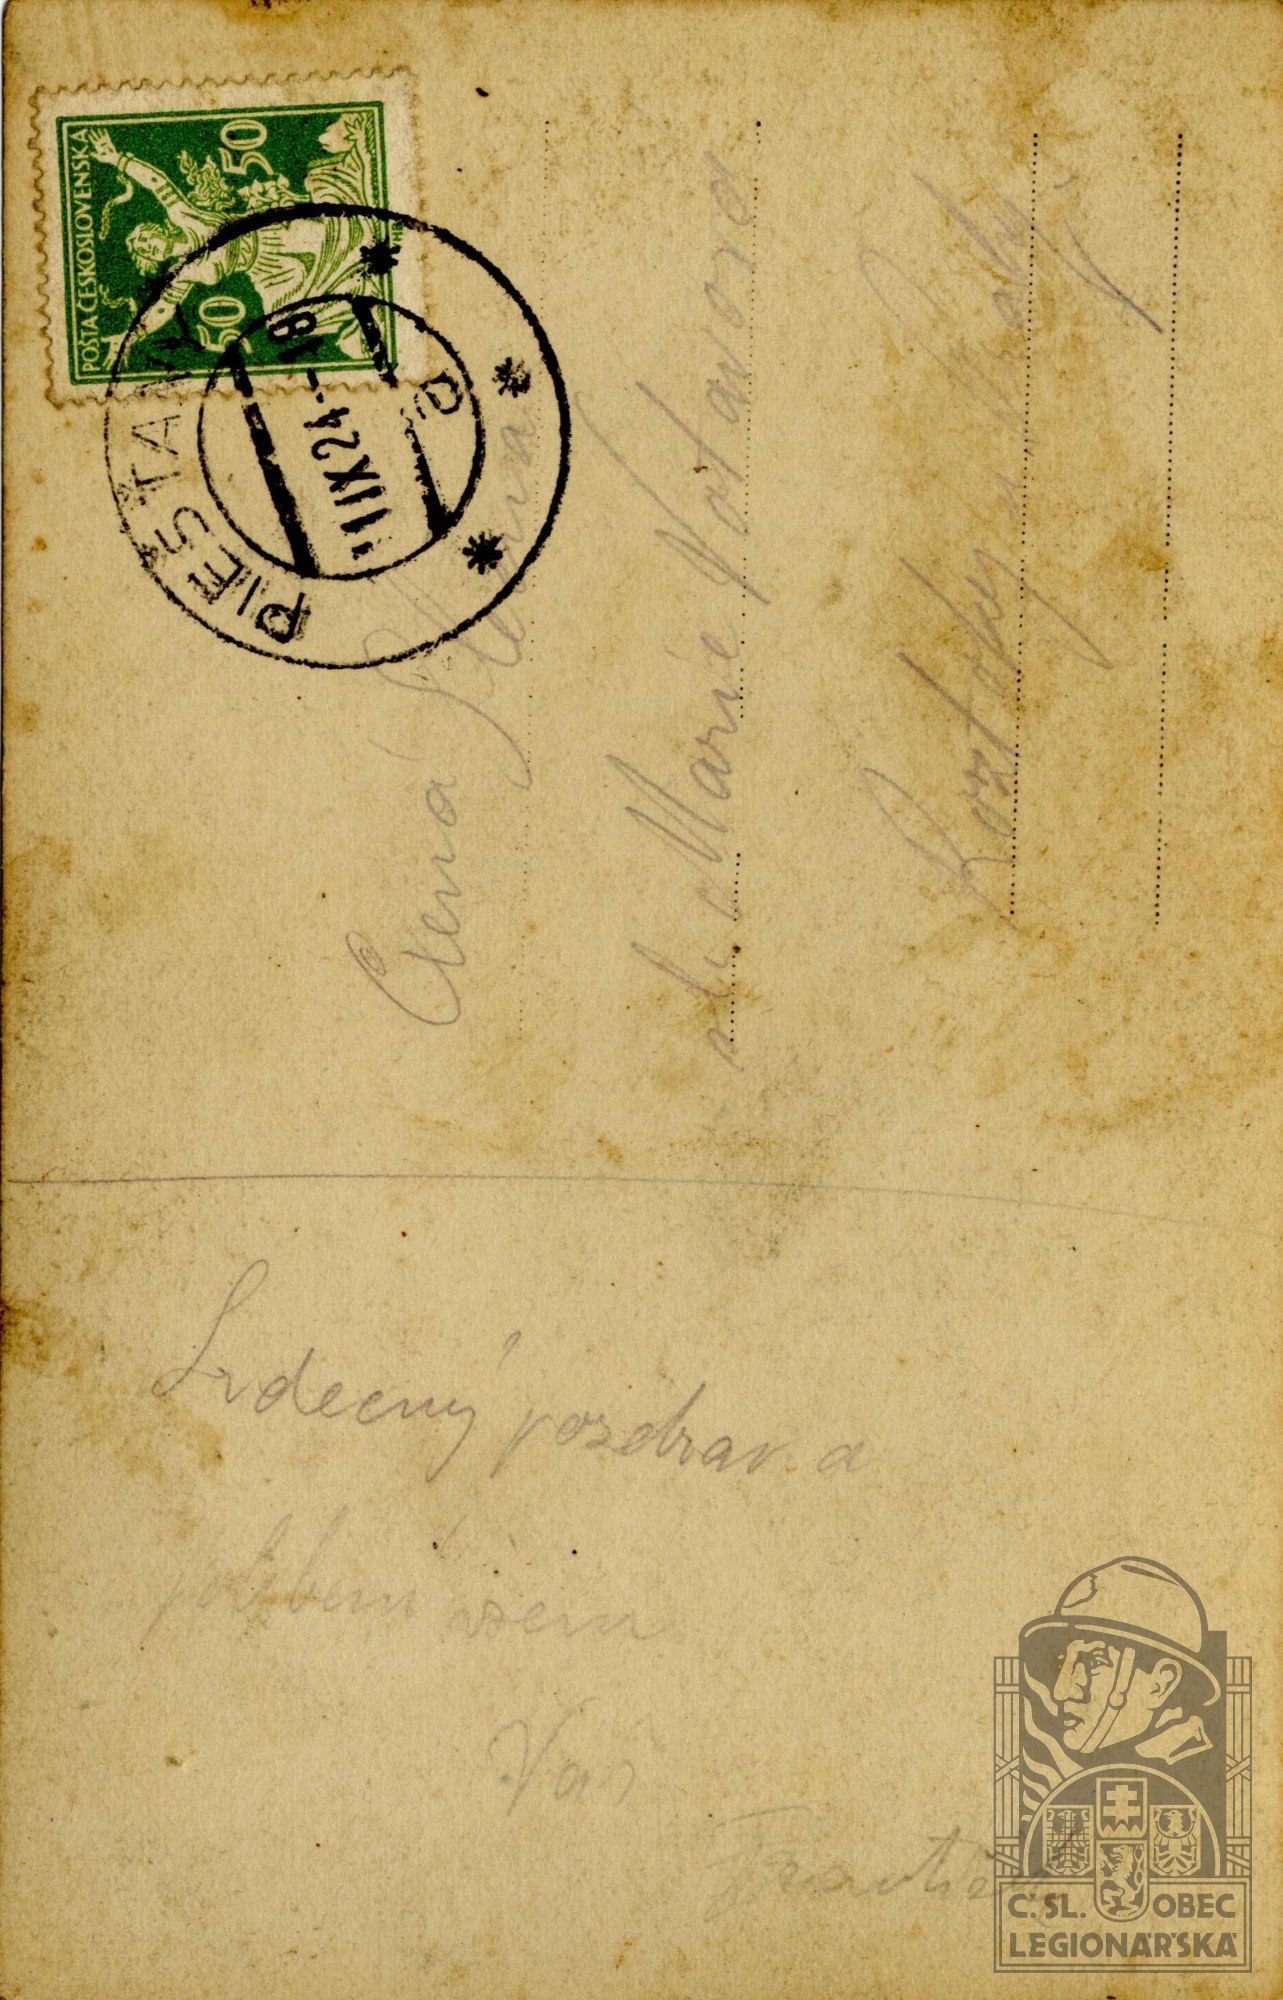 POŠTA ČESKOSLOVENSKA
50
50
PIEŠŤANY
11 IX 24 - 18
e
Ctěná Slečna
sl. Marie Votavova
Roztoky u Prahy
Srdečný pozdrav a
políbení všem
Váš
František
Č. SL. OBEC
LEGIONÁŘSKÁ